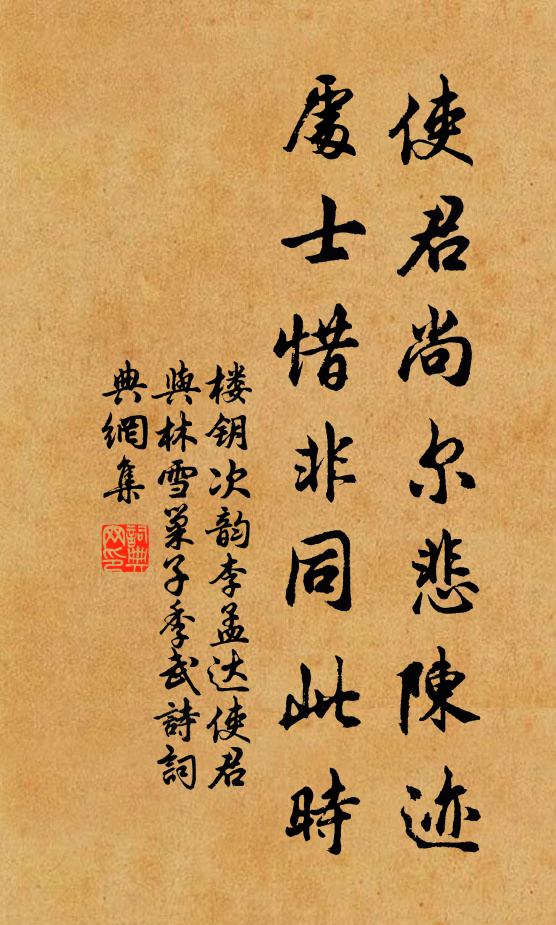 使君尚尔悲陳迹
處士惜非同此時
楼钥次韵李孟达使君
與林雪巢子季武詩詞
典網集
詞典網印